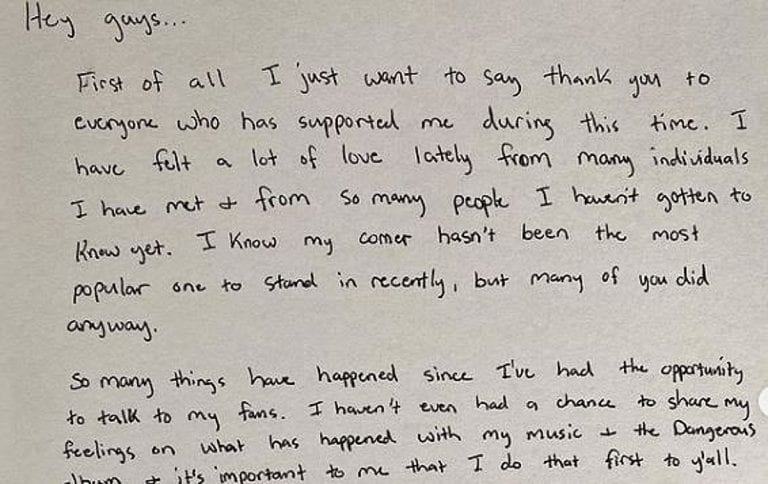 Hey guys...
First of all I just want to say thank you to
everyone who has supported me during this time. I
have felt a lot of love lately from many individuals
I have met + from so many people I haven't gotten to
know yet. I know my corner hasn't been the most
popular one to stand in recently, but many of you did
anyway.
So many things have happened since I've had the opportunity
to talk to my fans. I haven't even had a chance to share my
feelings on what has happened with my music + the Dangerous
album + it's important to me that I do that first to y'all.